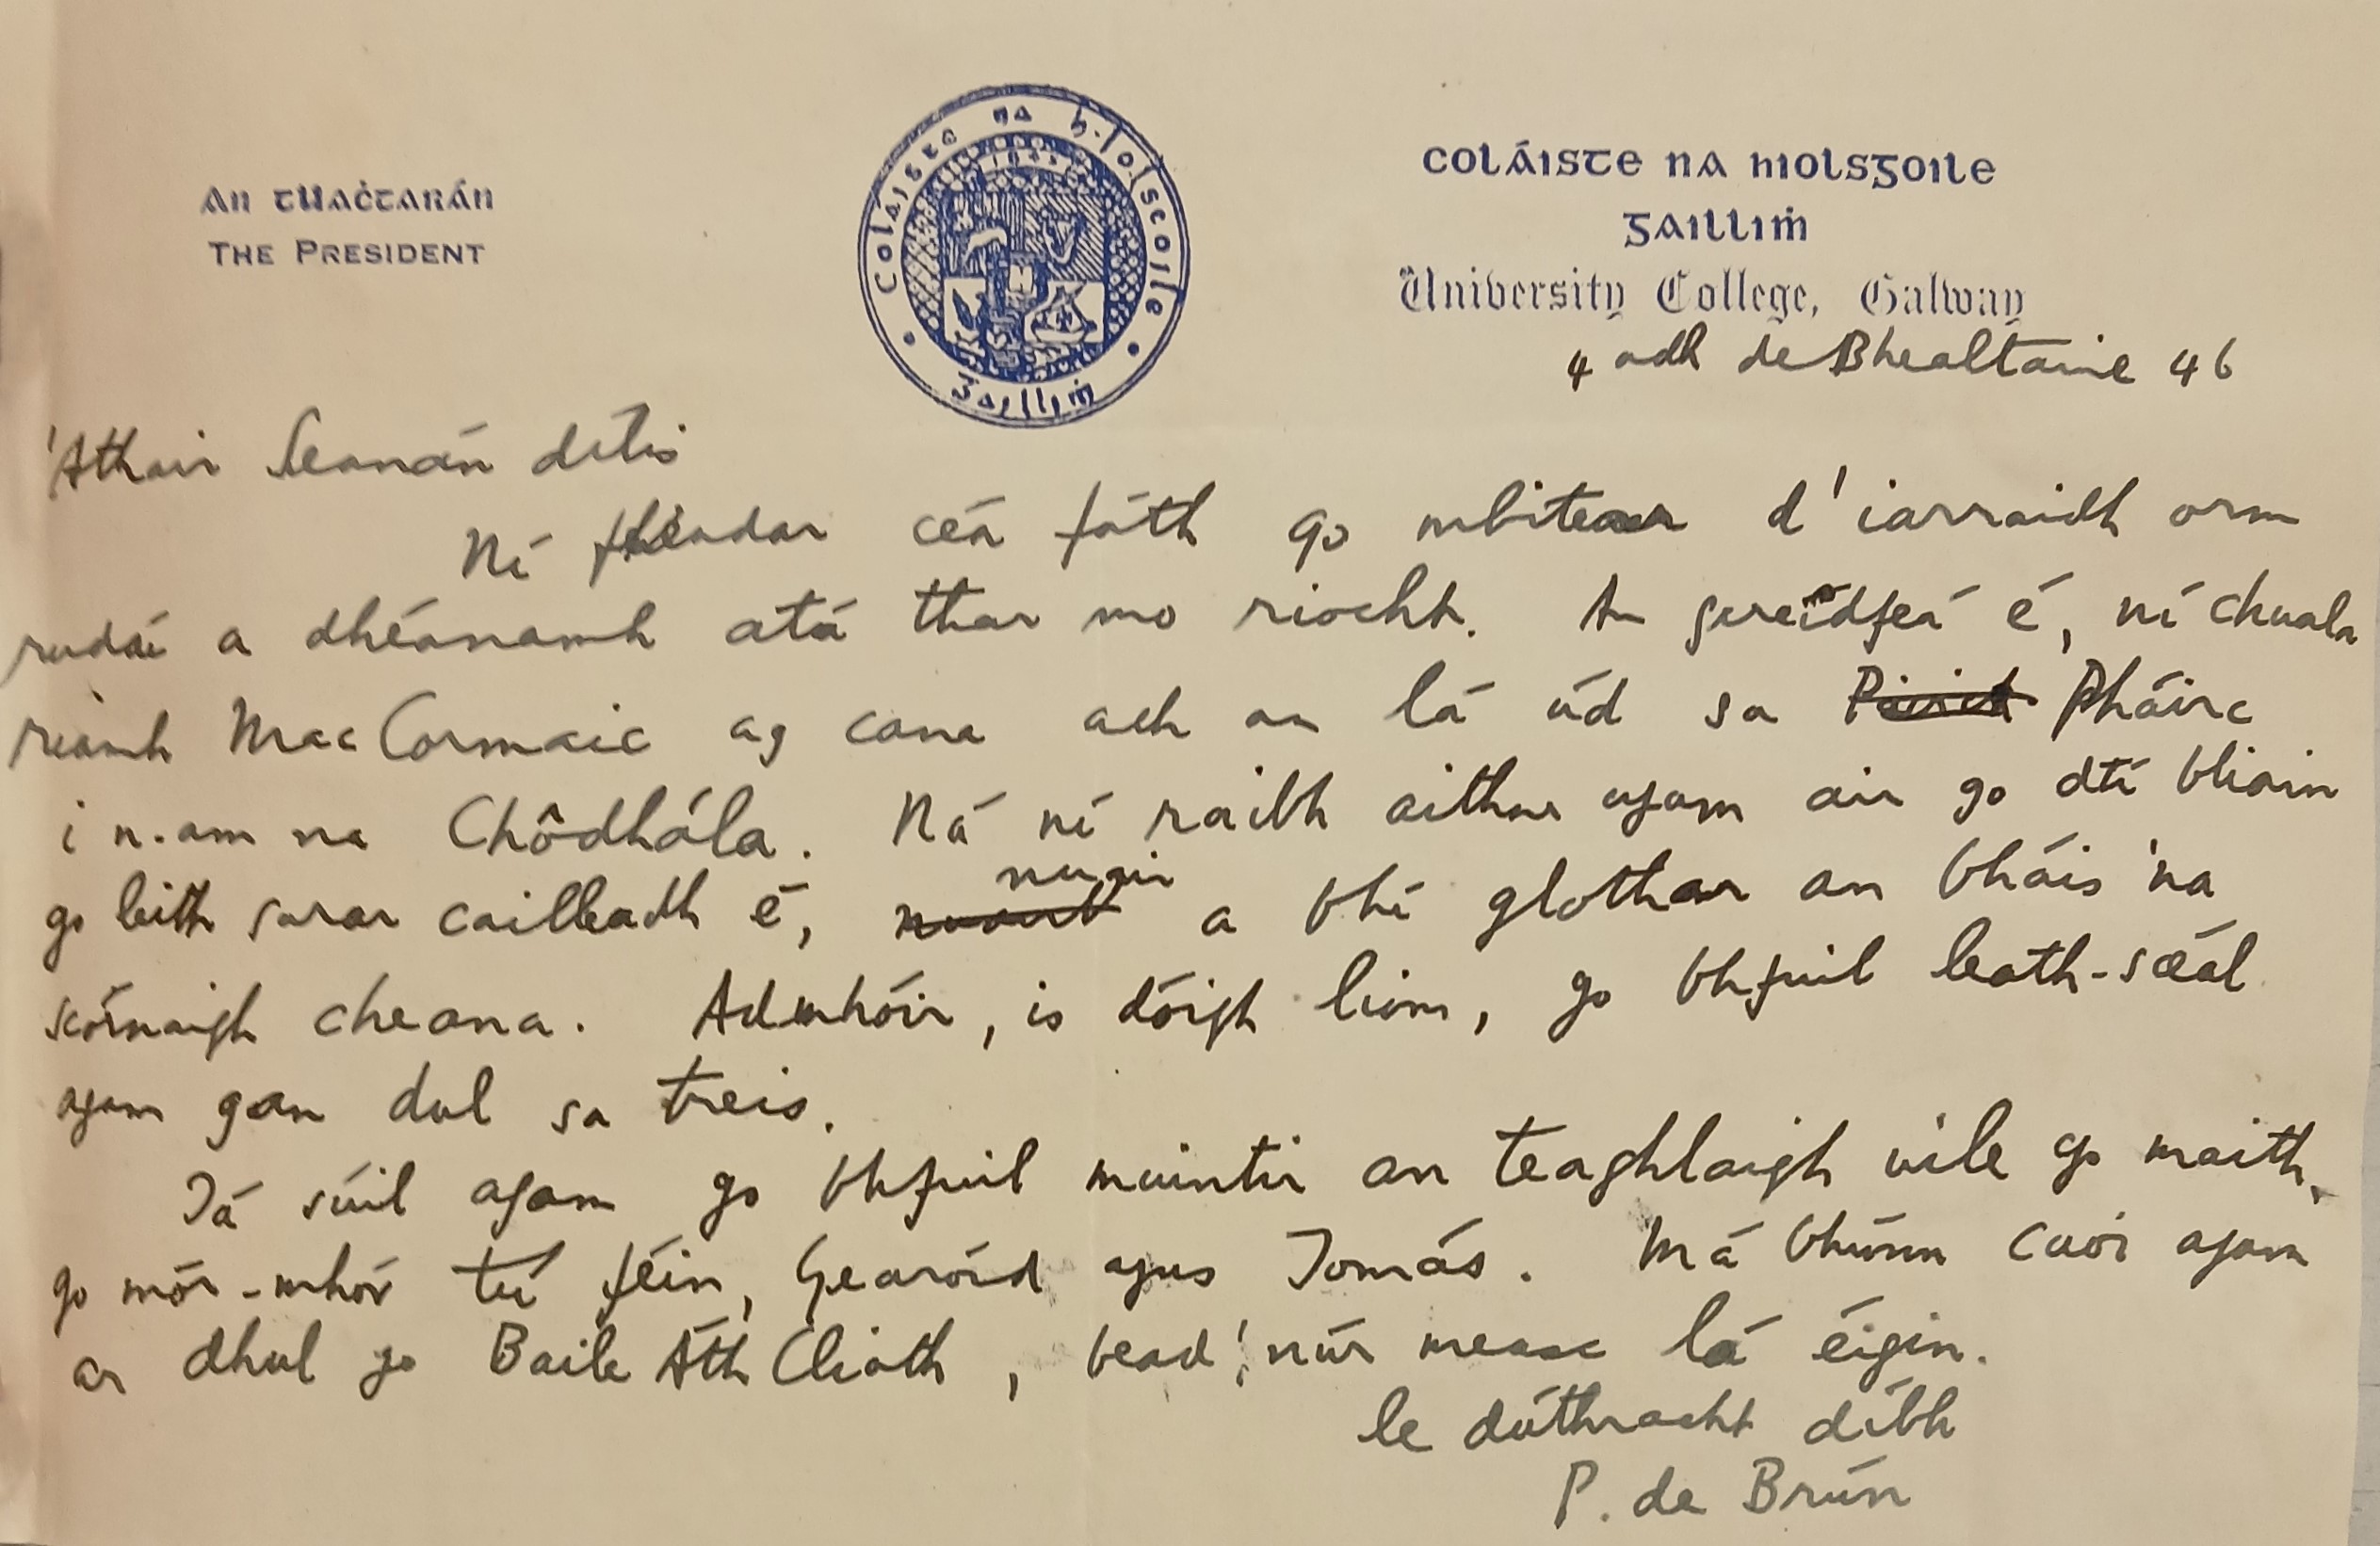 An tUaċtarán
The President
Coláiste na h-Iolscoile
Gailliṁ
Coláiste na hIolsgoile
Gailliṁ
University College, Galway
4 adh de Bhealtaine 46
'Athair Seanán dílis
Ní fhéadar céa fáth go mbítear d'iarraidh orm
rudaí a dhéanamh atá thar mo riocht. An gcreidfeá é, ní chuala
riamh Mac Cormaic ag cana ach an lá úd sa Pháirc
i n-am na Chôdhála. Ná ní raibh aithne agam air go dtí bliain
go leith sarar cailleadh é, nuair a bhí glothar an bháis 'na
scórnaigh cheana. Admhóir, is dóigh liom, go bhfuil leath-scéal
agam gan dul sa treis.
Tá súil agam go bhfuil muintir an teaghlaigh uile go maith,
go mór-mhór tú féin, Gearóid agus Tomás. Má bhíonn caoi agam
ar dhul go Baile Áth Cliath, bead 'núr measc lá éigin.
le dúthracht díbh
P. de Brún